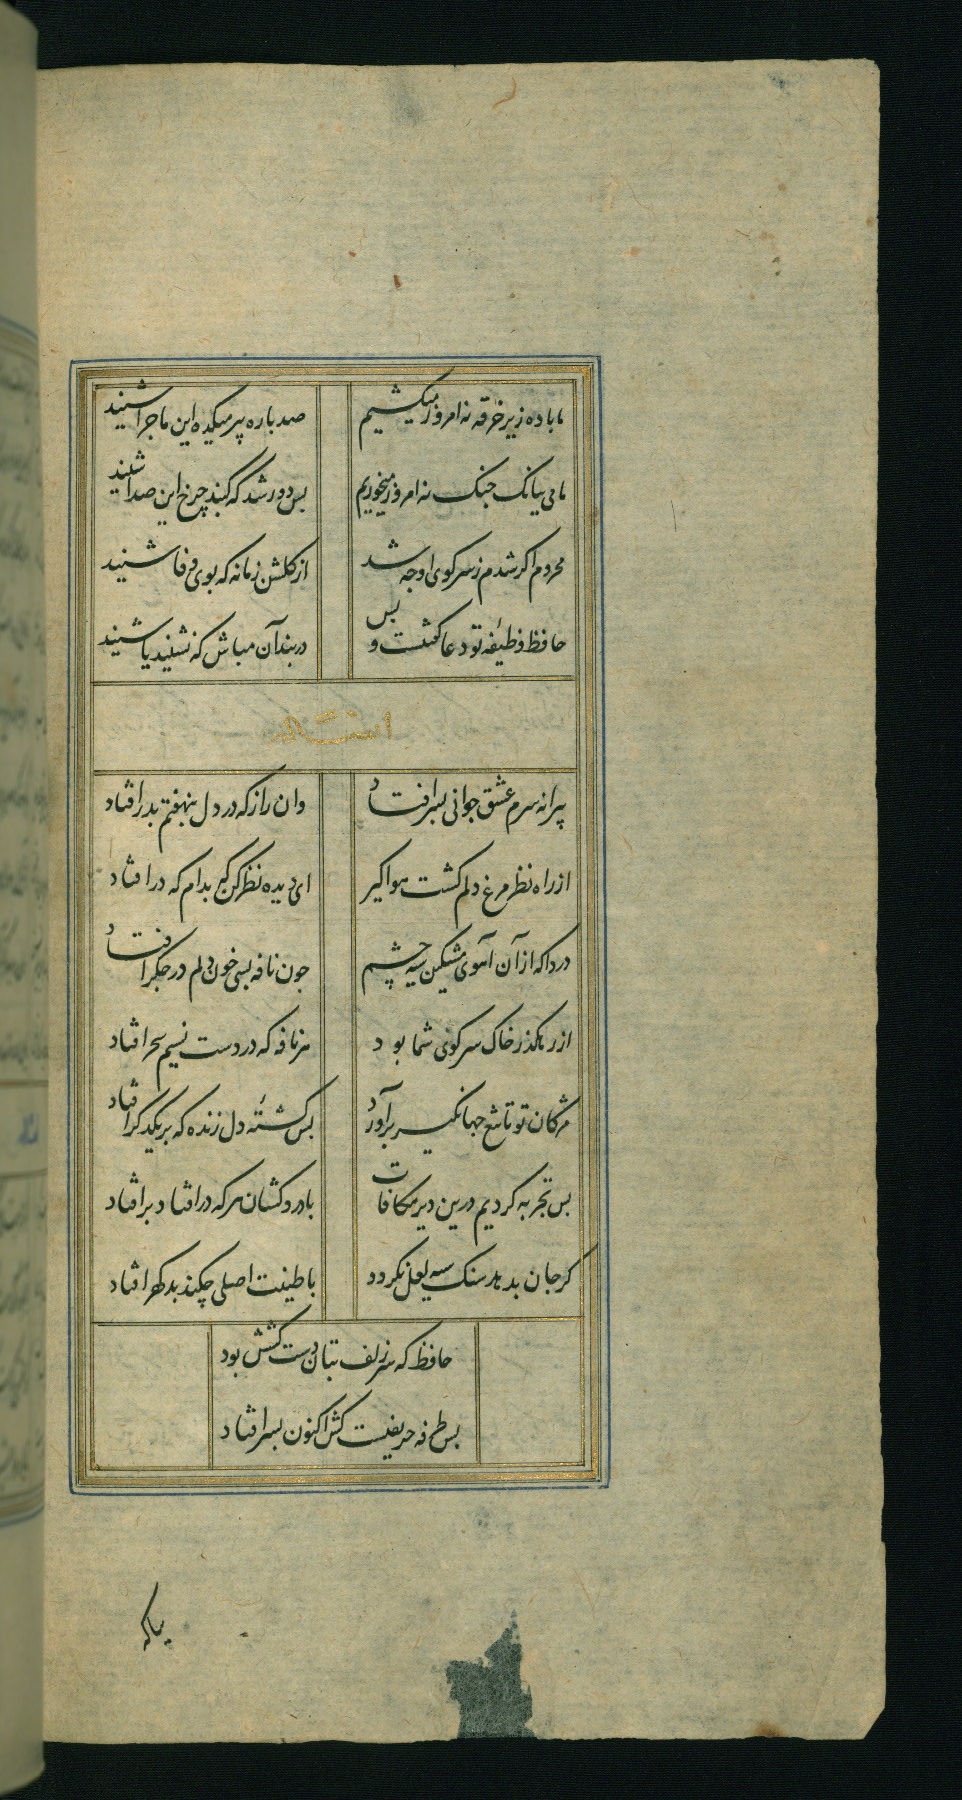 ما باده زیر خرقه نه امروز میکشیم
صد باره پیر میکده این ماجرا شنید
ما می ببانک جنک نه امروز میخوریم
بس دور شد که کنبد چرخ این صدا شنید
محروم اکر شدم ز سر کوی او چه شد
از کلشن زمانه که بوی وفا شنید
حافظ وظیفه تو دعا کفتنست و بس
در بند آن مباش که نشنید یا شنید
پیرانه سرم عشق جوانی بسر افتاد
وان راز که در دل بنهفتم بدر افتاد
از راه نظر مرغ دلم کشت هوا کیر
ای دیده نظر کن که بدام که در افتاد
دردا که از آن آهوی مشکین سیه چشم
جون نافه بسی خون دلم در جکر افتاد
از رهکذر خاک سر کوی شما بود
هر نافه که در دست نسیم سحر افتاد
مژکان تو تا تیغ جهانکیر برآورد
بس کشتهٔ دل زنده که بر یکدکر افتاد
بس تجربه کردیم درین دیر مکافات
با درد کشان هر که در افتاد بر افتاد
کر جان بدهد سنک سیه لعل نکردد
با طینت اصلی چکند بد کهر افتاد
حافظ که سر زلف بتان دست کشش بود
بس طرفه حریفیست کش اکنون بسر افتاد